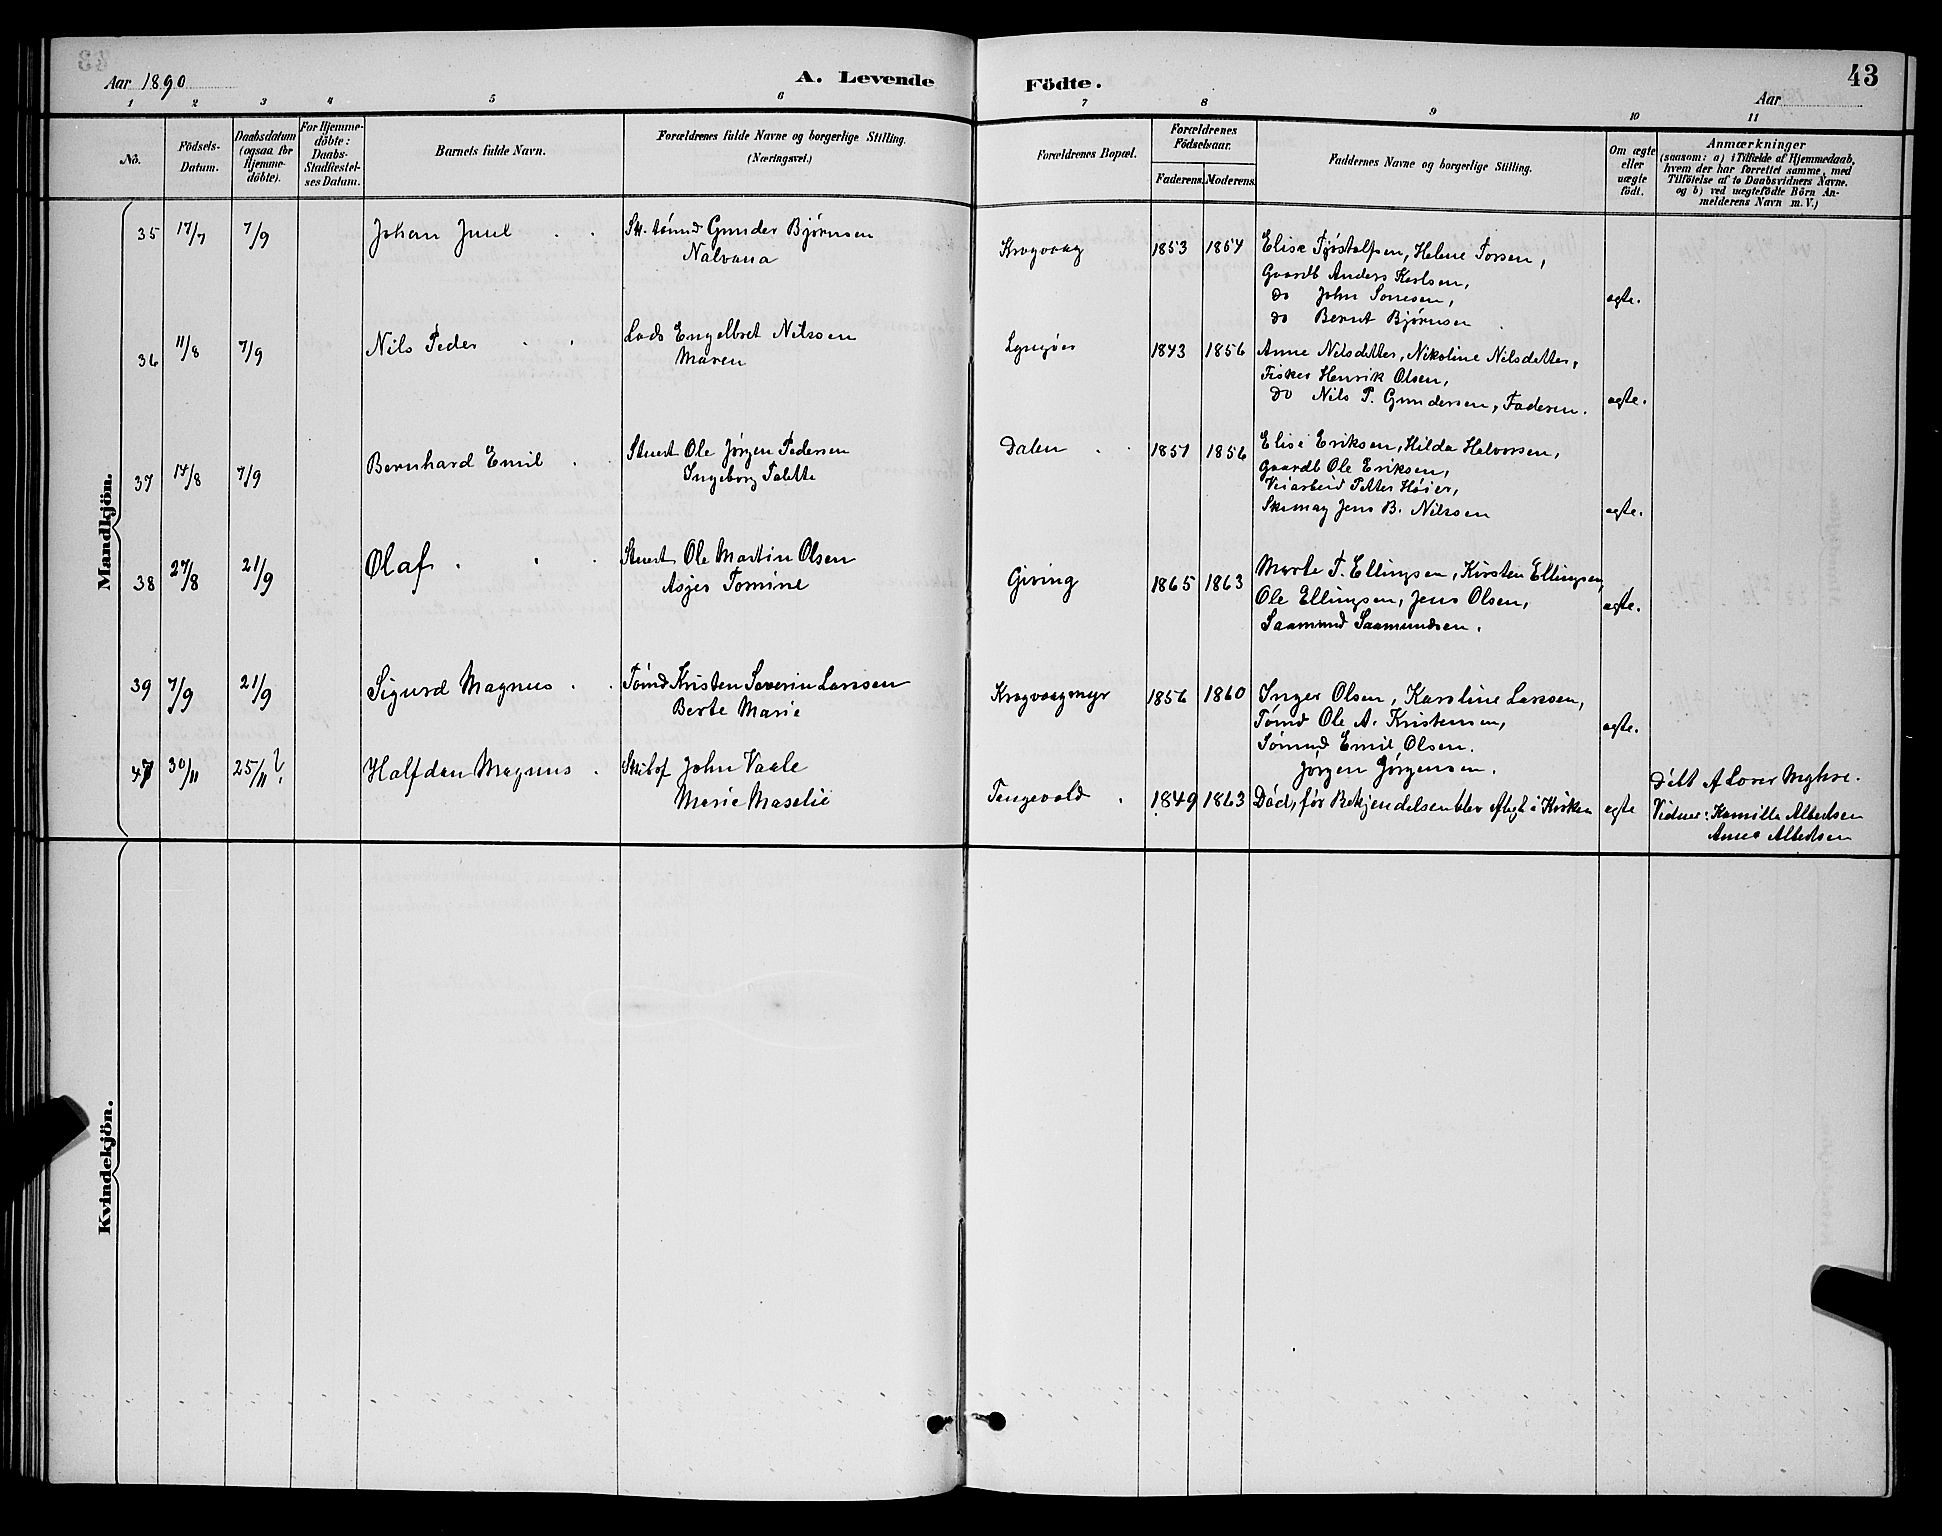 Aar 1890
A. Levende
Födte.
43
Aar
1 2 3 4 5 6 7 8 9 10 11
No.
Födsels-
Datum.
Daabsdatum
(ogsaa for
Hjemme-
döbte).
For Hjemme-
döbte:
Daabs-
Stadfæstel-
ses Datum.
Barnets fulde Navn.
Forældrenes fulde Navne og borgerlige Stilling.
(Næringsvei.)
Forældrenes Bopæl.
Forældrenes
Födselsaar.
Faderens. Moderens.
Faddernes Navne og borgerlige Stilling.
Om ægte
eller
uægte
födt.
Anmærkninger
(saasom: a) i Tilfælde af Hjemmedaab,
hvem der har forrettet samme, med
Tilföielse af to Daabsvidners Navne,
og b) ved uægtefödte Börn An-
melderens Navn m. V.)
Mandkjön.
35 17/7 7/9 Johan Juul
Gunder Bjørnsen
Nalvana
Krogvaag 1853 1854
Elise Tjøstolfsen, Helene Torsen,
Gaardb Anders Karlsen,
do John Sonesen,
do Bernt Bjørnsen
ægte.
36 11/8 7/9 Nils Peder
Lods Engelbret Nilssen
Maren
Lyngøer 1843 1856
Anne Nilsdatter, Nikoline Nilsdatter,
Fisker Henrik Olsen,
do Nils P. Gundersen, Faderen.
ægte.
37 14/8 7/9 Bernhard Emil
Stuert Ole Jørgen Pedersen
Ingeborg Talette
Dalen 1851 1856
Elise Eriksen, Hilda Halvorsen,
Gaardb Ole Eriksen,
Veiarbeid Petter Høier,
Skomag Jens B. Nilssen
ægte.
38 27/8 21/9 Olaf
Stuert Ole Martin Olsen
Asjer Tomine
Giving 1865 1863
Marte T. Ellingsen, Kirsten Ellingsen,
Ole Ellingsen, Jens Olsen,
Saamund Saamundsen.
ægte.
39 7/9 21/9 Sigurd Magnus
Tømd Kristen Severin Larssen
Berte Marie
Krogvaagmyr 1856 1860
Inger Olsen, Karoline Larssen,
Tømd Ole A. Kristensen,
Sømnd Emil Olsen.
Jørgen Jørgensen.
ægte.
47 30/11 25/11 ? Halfdan Magnus
John Vaale
Marie Maselie
Tangevald 1849 1863
Død, før Bekjendelsen blev Aflagt i Kirken
ægte
Døbt A Lover Myhre.
Vidner: Kamille Albertsen
Anne Albertsen
Kvindekjön.